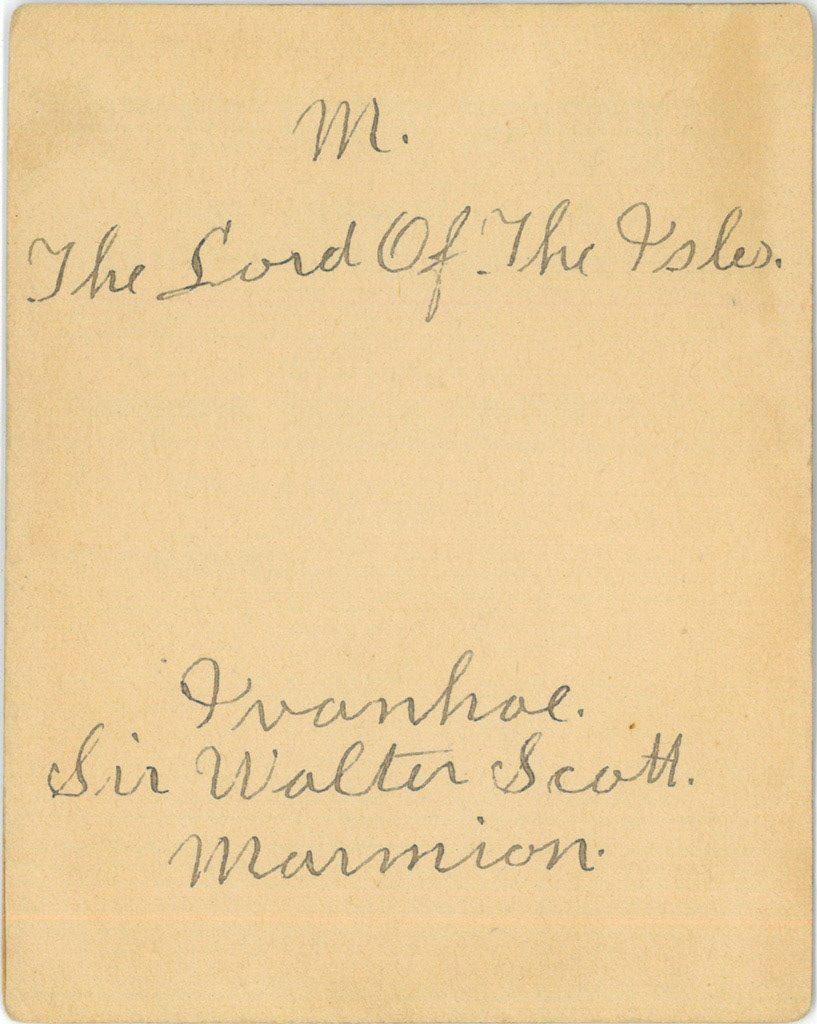 M.
The Lord Of The Isles.
Ivanhoe.
Sir Walter Scott.
Marmion.